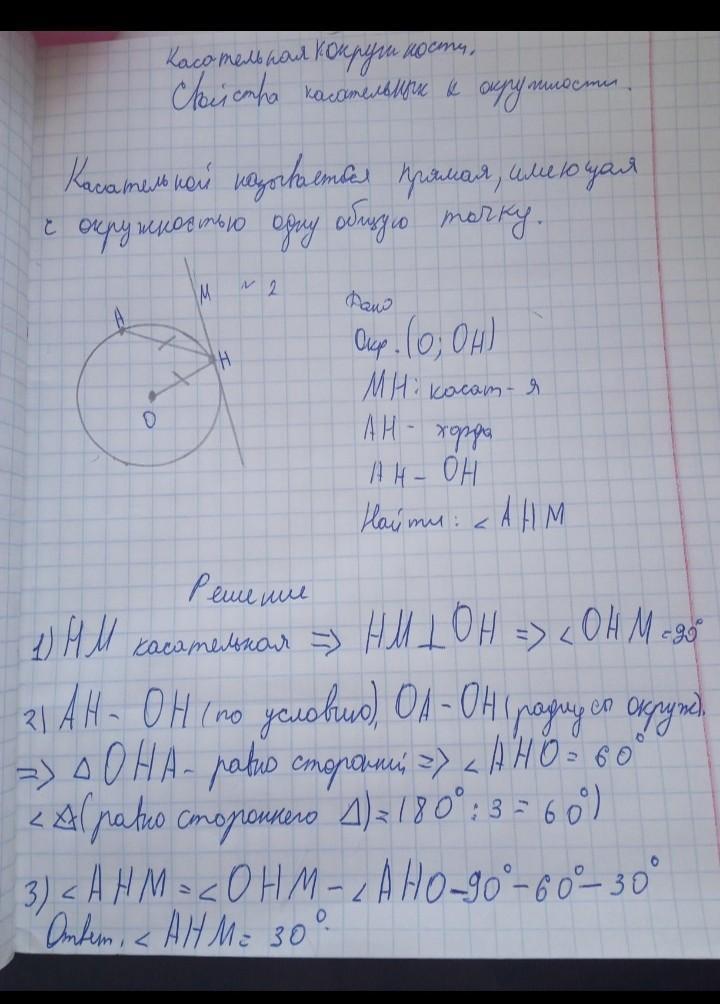 Касательная к окружности.
Свойства касательных к окружности.
Касательной называется прямая, имеющая
с окружностью одну общую точку.
M ~ 2
A
H
O
Дано
Окр. (O; OH)
MH: касат-я
AH - хорда
AH - OH
Найти: < AHM
Решение
1) HM касательная => HM⊥OH => <OHM=90°
2) AH - OH (по условию), OA - OH (радиусы окруж).
=> Δ OHA - равносторонний => <AHO = 60°
<Δ(равностороннего Δ)=180°:3=60°)
3) <AHM=<OHM-<AHO-90°-60°-30°
Ответ. <AHM= 30°.